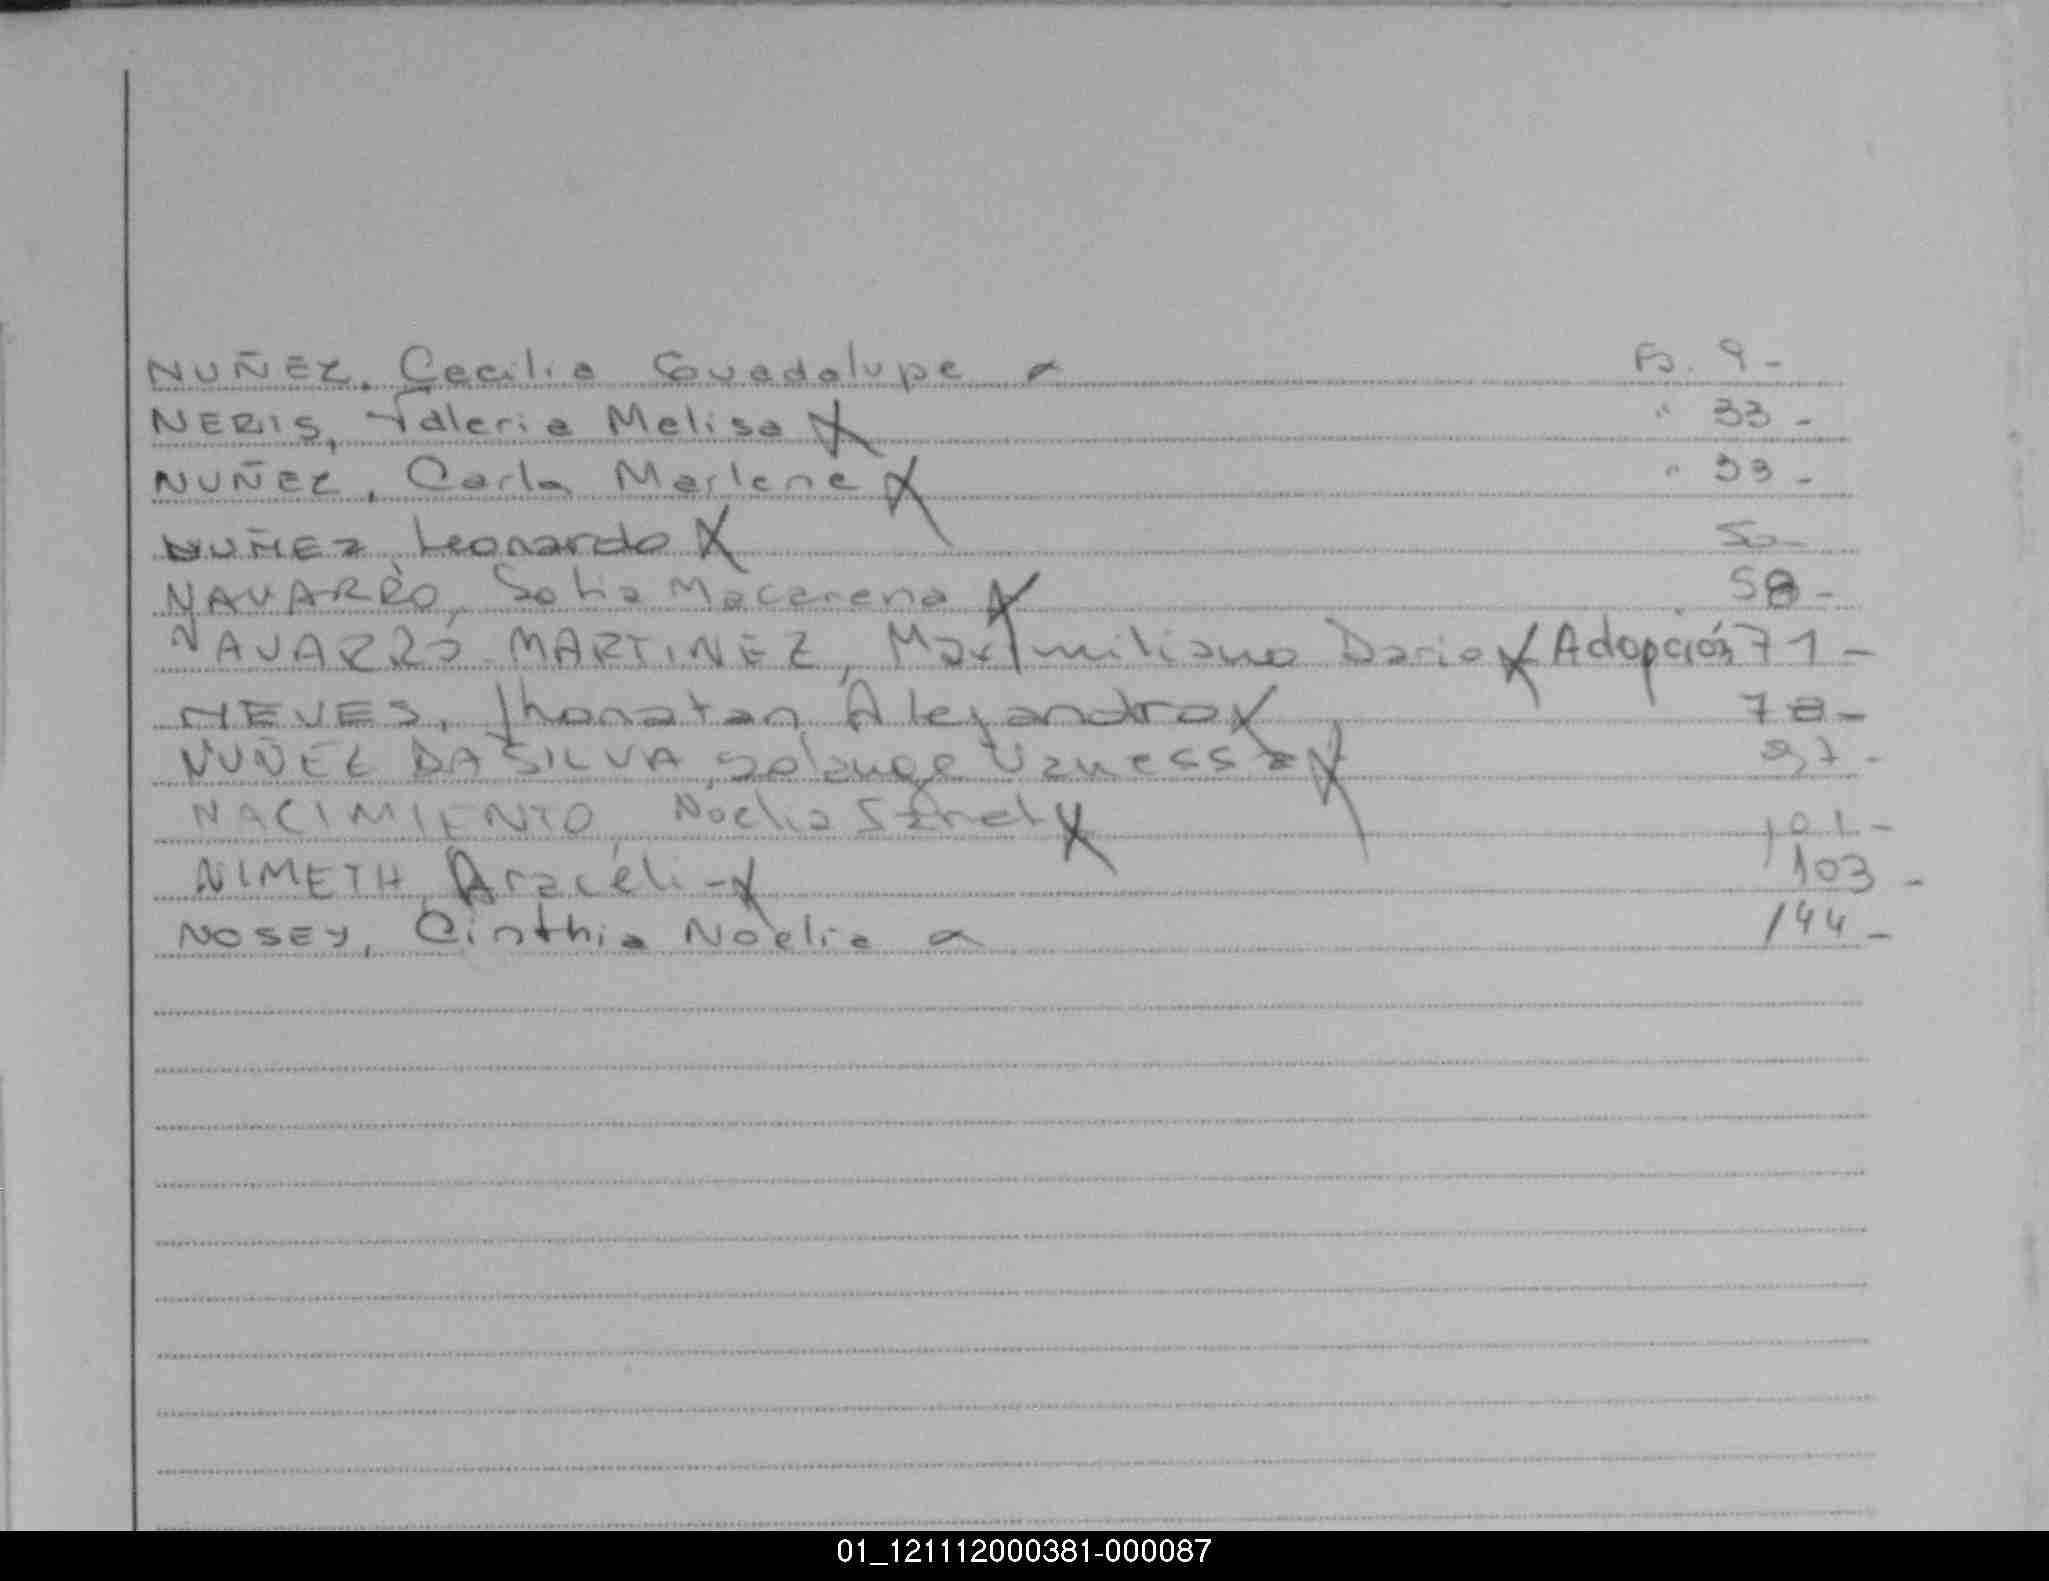 NUÑEZ, Cecilia Guadalupe Fs. 9-
NERIS, Valeria Melisa X " 33-
NUÑEZ, Carla Marlene X " 33-
NUÑEZ, Leonardo X 50-
NAVARRO, Sofia Macarena X 58-
NAVARRO MARTINEZ, Maximiliano Dario X Adopción 71-
NEVES, Jhonatan Alejandro X 78-
NUÑEZ DA SILVA, Solange Vanessa X 97-
NACIMIENTO, Noelia X 101-
NIMETH, Araceli - X 103-
NOSEY, Cinthia Noelia 144-
01_121112000381-000087